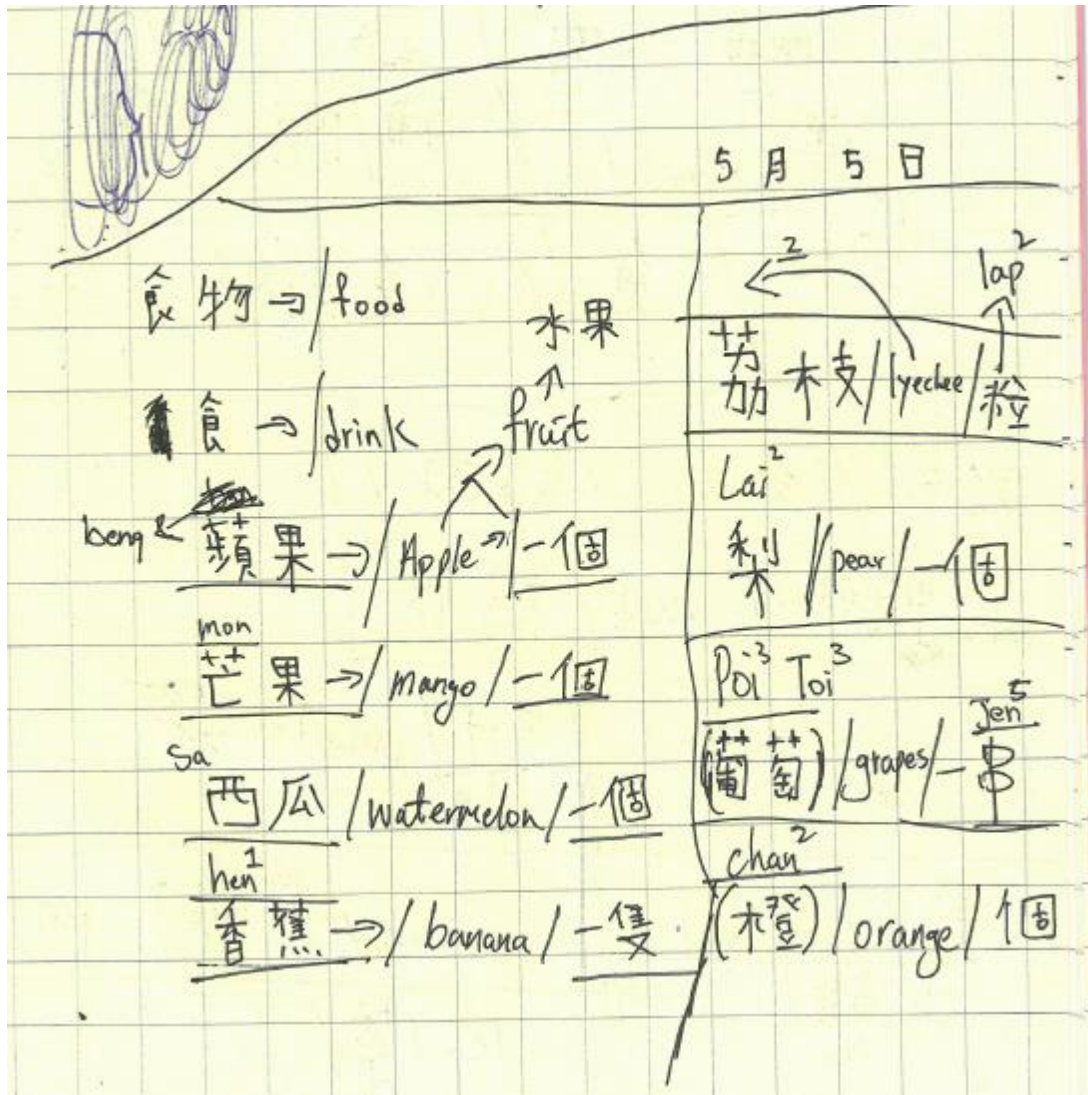 5月5日
食物→/food
水果
食→/drink
fruit
beng
蘋果→/Apple→/一個
mon
芒果→/mango/一個
sa
西瓜/watermelon/一個
hen¹
香蕉→/banana/一隻
2
lap²
荔枝/lyechee/粒
Lai²
梨//pear/一個
Poi³ Toi³
(葡萄)/grapes/一串
Jen⁵
chan²
(橙)/orange/個